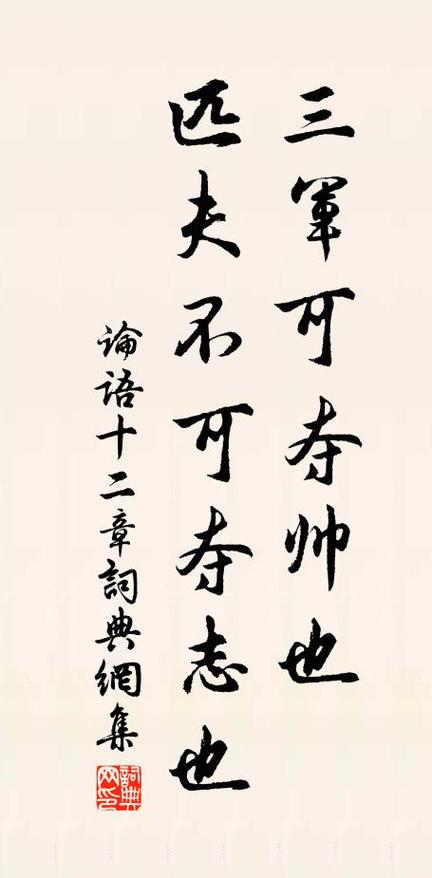 三軍可夺帅也
匹夫不可夺志也
論語十二章詞典網集
詞典网印